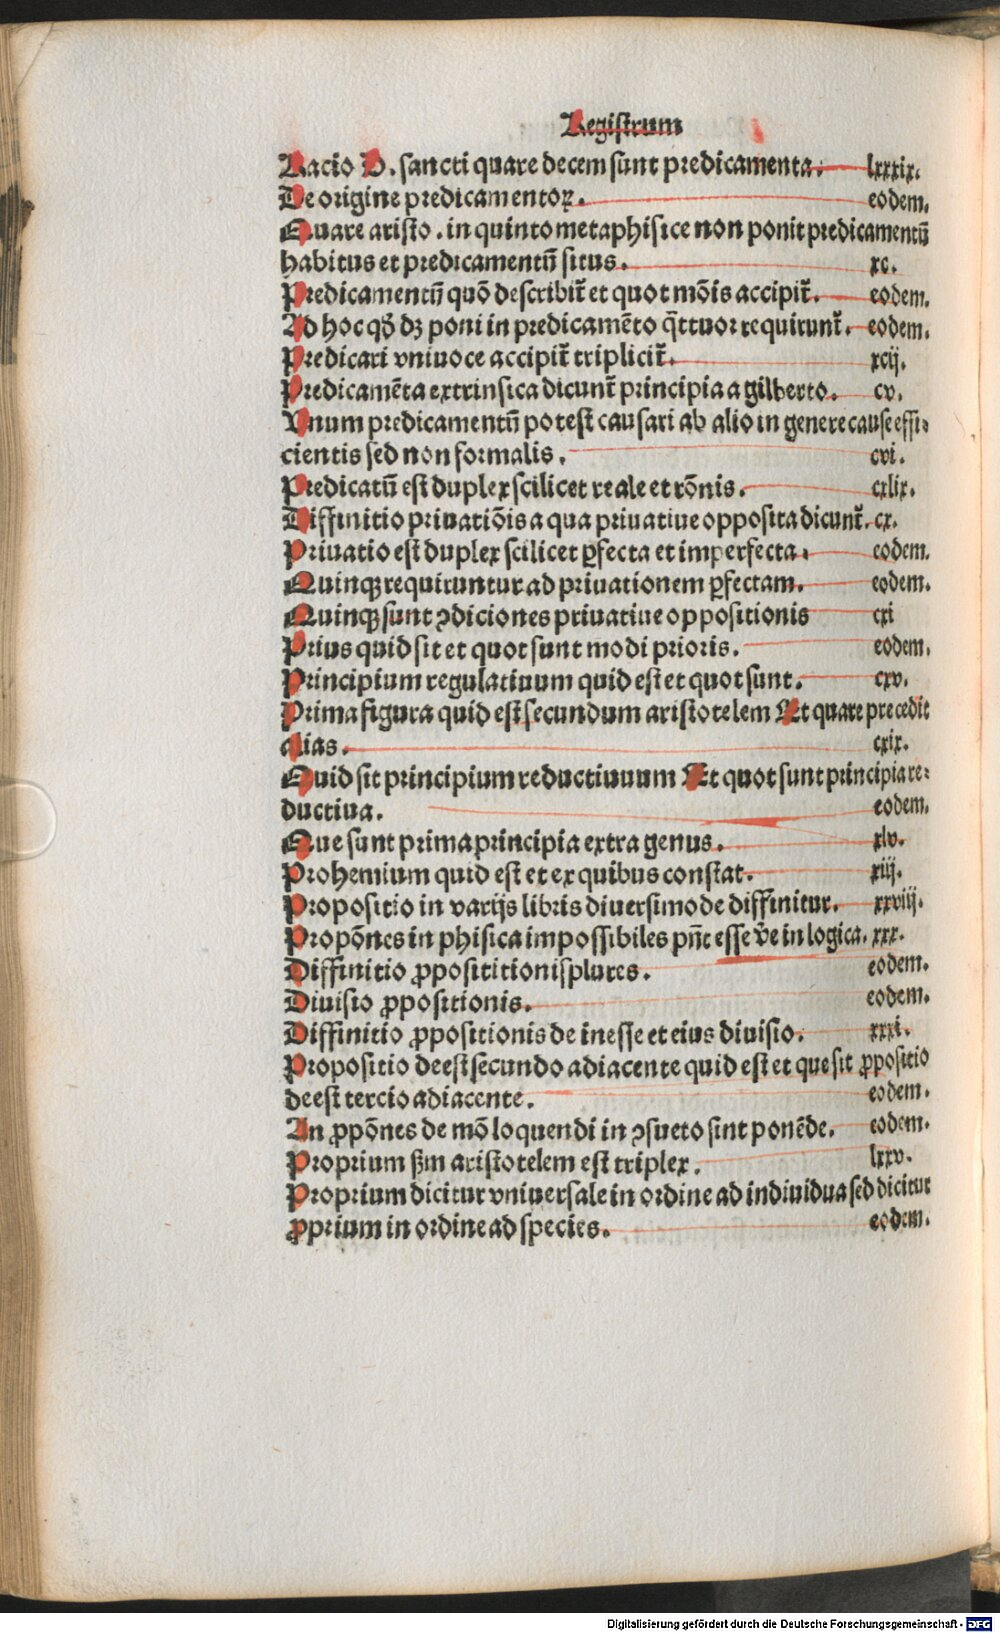 Registrum
Racio D. sancti quare decem sunt predicamenta. lxxxix.
De origine predicamentoꝝ. eodem.
Quare aristo. in quinto metaphisice non ponit predicamentū
habitus et predicamentū situs. xc.
Predicamentū quō describit᷑ et quot mōis accipit᷑. eodem.
Ad hoc qđ dꝫ poni in predicamēto q̄ttuor requirunt᷑. eodem.
Predicari vniuoce accipit᷑ triplicit᷑. xcij.
Predicamēta extrinsica dicunt᷑ principia a gilberto. cv.
Vnum predicamentū potest causari ab alio in genere cause effi⸗
cientis sed non formalis. cvi.
Predicatū est duplex scilicet reale et rōnis. cxlix.
Diffinitio priuatiōis a qua priuatiue opposita dicunt᷑. cx.
Priuatio est duplex scilicet ꝑfecta et imperfecta. eodem.
Quinqꝫ requiruntur ad priuationem ꝑfectam. eodem.
Quinqꝫ sunt ꝯdiciones priuatiue oppositionis cxi
Prius quid sit et quot sunt modi prioris. eodem.
Principium regulatiuum quid est et quot sunt. cxv.
Prima figura quid est secundum aristotelem Et quare precedit
alias. cxix.
Quid sit principium reductiuuum Et quot sunt principia re⸗
ductiua. eodem.
Que sunt prima principia extra genus. xlv.
Prohemium quid est et ex quibus constat. xiij.
Propositio in varijs libris diuersimode diffinitur. xxviij.
Propōnes in phisica impossibiles pn̄t esse v̄e in logica. xxx.
Diffinitio ꝓposititionis plures. eodem.
Diuisio ꝓpositionis. eodem.
Diffinitio ꝓpositionis de inesse et eius diuisio. xxxi.
Propositio de est secundo adiacente quid est et que sit ꝓpositio
de est tercio adiacente. eodem.
An ꝓpōnes de mō loquendi in ꝯsueto sint ponēde. eodem.
Proprium ẜm aristotelem est triplex. lxxv.
Proprium dicitur vniuersale in ordine ad indiuidua sed dicitur
ꝓprium in ordine ad species. eodem.
Digitalisierung gefördert durch die Deutsche Forschungsgemeinschaft - DFG